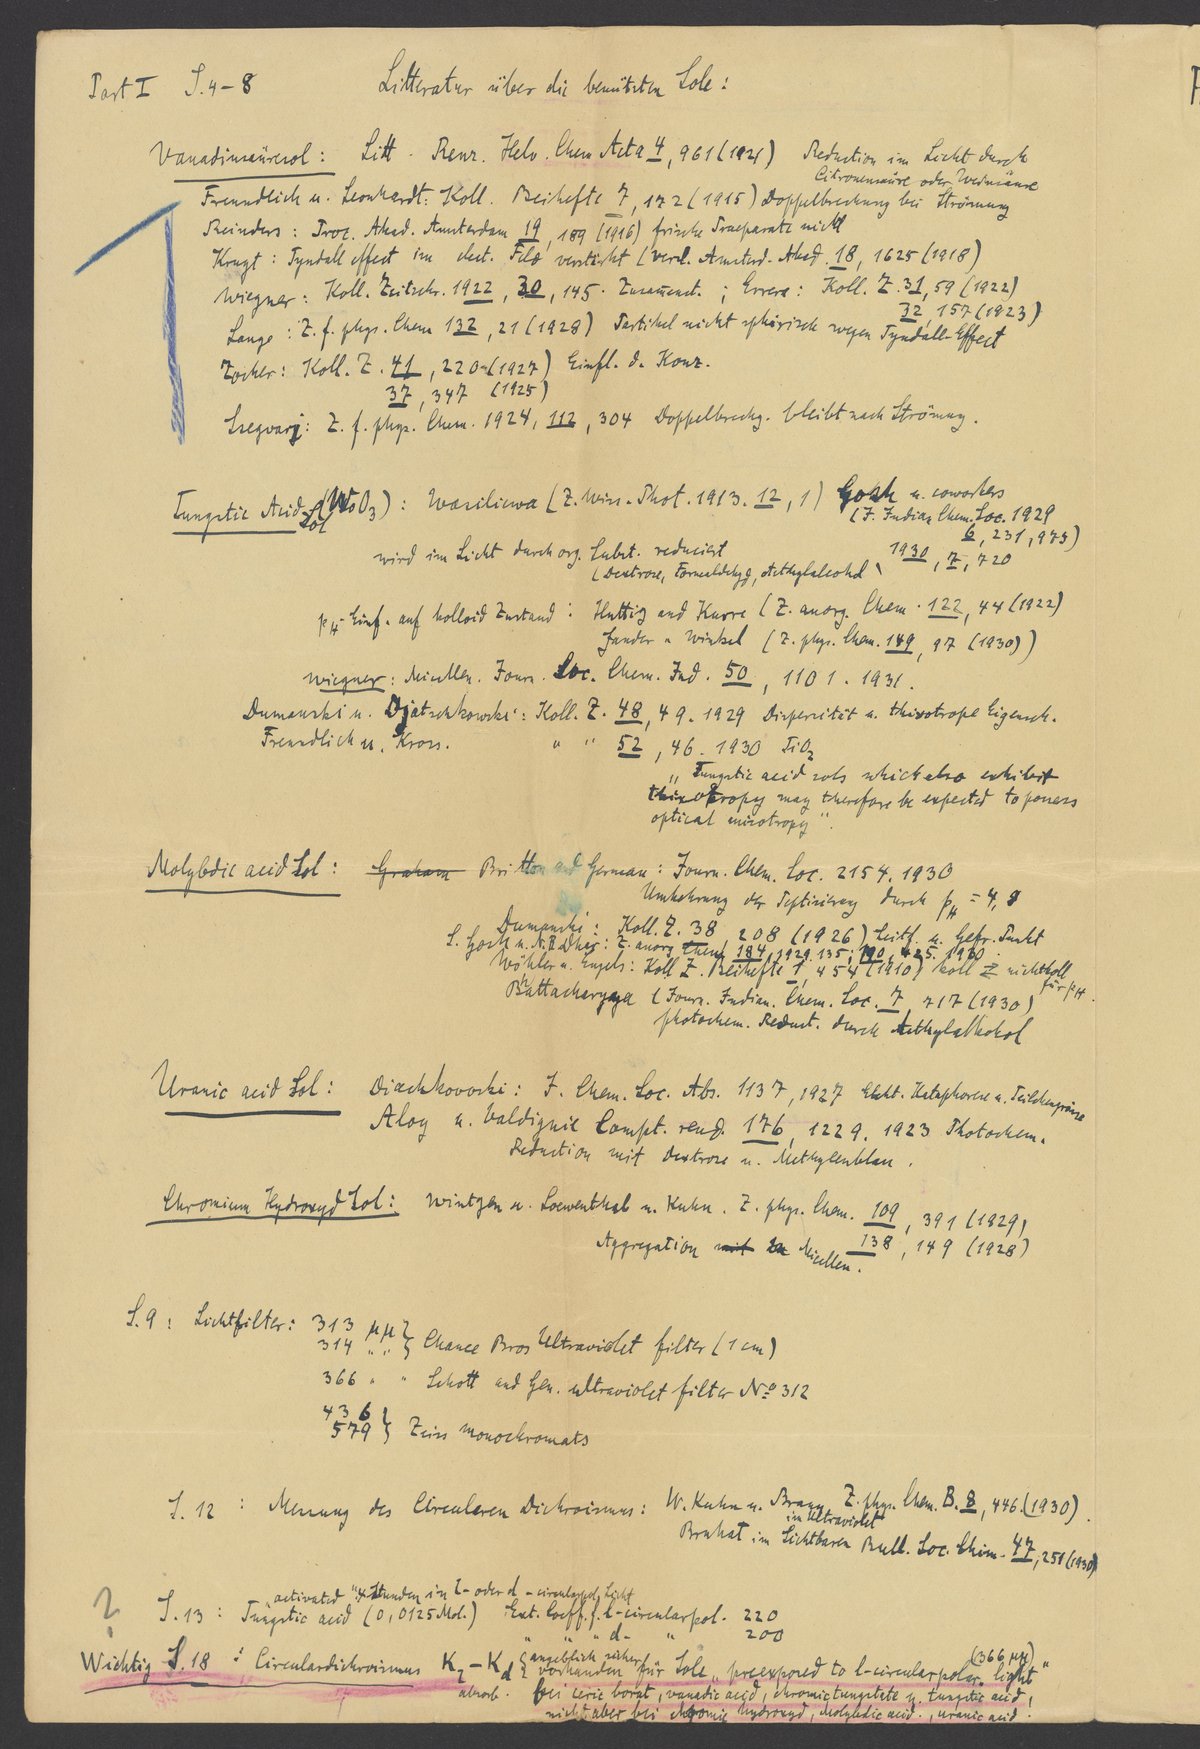 Part I S. 4-8 Litteratur über die benützten Sole:
Vanadinsäuresol: Litt. Renz. Helv. Chem Acta 4, 961 (1921) Reduction im Licht durch
Citronensäure oder Weinsäure
Freundlich u. Leonhardt: Koll. Beihefte 7, 172 (1915) Doppelbrechung bei Strömung
Reinders: Proc. Akad. Amsterdam 19, 189 (1916) frische Praeparate nicht
Kruyt: Tyndall effect im elect. Feld verstärkt (Verl. Amsterd. Akad. 18, 1625 (1918)
Wiegner: Koll. Zeitschr. 1922, 30, 145. Zusammenst.; Errera: Koll. Z. 31, 59 (1922)
32, 157 (1923)
Lange: Z. f. phys. Chem 132, 21 (1928) Partikel nicht sphärisch wegen Tyndall-Effect
Zocher: Koll. Z. 41, 220 (1927) Einfl. d. Konz.
37, 347 (1925)
Szegvarj: Z. f. phys. Chem. 1924, 112, 304 Doppelbrechg. bleibt nach Strömung.
Tungstic Acid Sol (WoO3): Wasiliewa (Z. Wiss. Phot. 1913. 12, 1) Gosh u. coworkers
(J. Indian Chem. Soc. 1929
6, 231, 975)
wird im Licht durch org. Subst. reduciert 1930, 7, 720
(Dextrose, Formaldehyd, Aethylalcohol)
pH-Einf. auf kolloid Zustand: Huttig and Kurre (Z. anorg. Chem. 122, 44 (1922)
Jander u Winkel (Z. phys. Chem. 149, 97 (1930))
Wiegner: Micellen. Journ. Soc. Chem. Ind. 50, 1101. 1931.
Dumanski u. Djatschkowski: Koll. Z. 48, 49. 1929 Dispersität u. thixotrope Eigensch.
Freundlich u. Kross. " " 52, 46. 1930 TiO2
"Tungstic acid sols which also exhibit
thixotropy may therefore be expected to possess
optical anisotropy".
Molybdic acid Sol: Graham Britton and German: Journ. Chem. Soc. 2154. 1930
Umkehrung der Peptisierung durch pH = 4,8
Dumanski: Koll. Z. 38 208 (1926) Leitf. u. Gefr. Punkt
S. Gosh u. N. R Dhar: Z. anorg Chem 184, 1929. 135; 190, 425. 1930.
Wöhler u. Engels: Koll Z. Beihefte 1, 454 (1910) koll nicht koll
für pH.
Battacharyya (Journ. Indian. Chem. Soc. 7, 717 (1930)
photochem. Reduct. durch Aethylalkohol
Uranic acid Sol: Diachkovoski: J. Chem. Soc. Abs. 1137, 1927 Elekt. Kataphorese u. Teilchengrösse
Aloy u. Valdiguie Compt. rend. 176, 1229. 1923 Photochem.
Reduction mit Dextrose u. Methylenblau.
Chromium Hydroxyd Sol: Wintgen u. Loewenthal u. Kuhn. Z. phys. Chem. 109, 391 (1929)
138, 149 (1928)
Aggregation mit Micellen.
S. 9: Lichtfilter: 313 μμ
314 " " } Chance Bros Ultraviolet filter (1 cm)
366 " " Schott and Gen. ultraviolet filter No 312
436
579 } Zeiss monochromats
S. 12: Messung des Circularen Dichroismus: W. Kuhn u. Braun Z. phys. Chem. B. 8, 446. (1930).
im Ultraviolet
Bruhat im Sichtbaren Bull. Soc. Chim. 47, 251 (1930)
activated "4 Stunden in l- oder d-circularpol. Licht
? S. 13: Tungstic acid (0,0125 Mol.) Ext. Coeff. f. l-circularpol. 220
" " " d- " 200
Wichtig S. 18: Circulardichroismus Kl - Kd { angeblich vorhanden für Sole "preexposed to l-circularpolar. light" (366 μμ)
absorb. bei ceric borat, vanadic acid, chromictungstate u. tungstic acid,
nicht aber bei chromic hydroxyd, Molybdic acid., uranic acid.